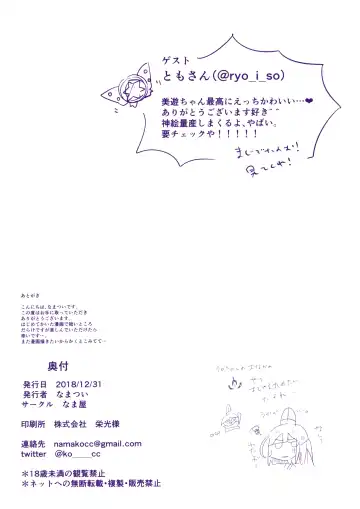 ゲスト
ともさん(@ryo_i_so)
美遊ちゃん最高にえっちかわいい…❤
ありがとうございます好き^^
神絵量産しまくるよ、やばい。
要チェックや!!!!!
まじでたのむ!
見てくれ!
あとがき
こんにちは、なまついです。
この度はお手に取っていただき
ありがとうございます。
はじめてかいた漫画で拙いところ
だらけですが楽しんでいただけたら
幸いです~。
また漫画描きたいからかくとこみてて~
奥付
発行日 2018/12/31
発行者 なまつい
サークル なま屋
印刷所 株式会社 栄光様
連絡先 namakocc@gmail.com
twitter @ko____cc
*18歳未満の観覧禁止
*ネットへの無断転載・複製・販売禁止